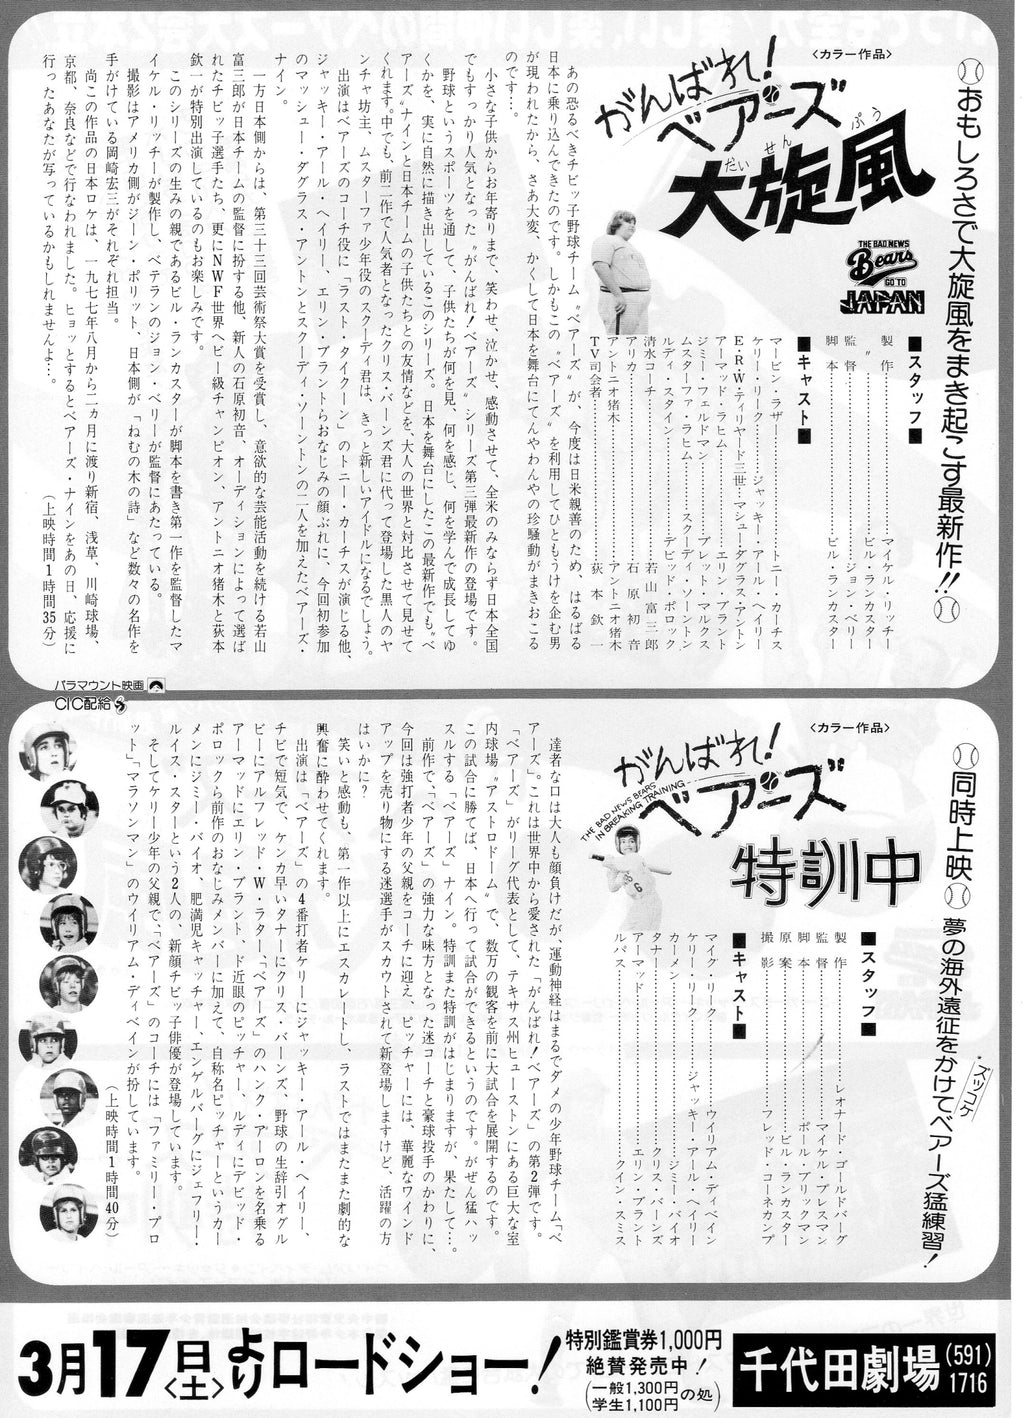 おもしろさで大旋風をまき起こす最新作!!
〈カラー作品〉
がんばれ!
ベアーズ
だいせんぷう
大旋風
THE BAD NEWS
Bears
GO TO
JAPAN
■スタッフ■
製作……………マイケル・リッチー
〃……………ビル・ランカスター
監督……………ジョン・ベリー
脚本……………ビル・ランカスター
■キャスト■
マービン・ラザー……………トニー・カーチス
ケリー・リーク……………ジャッキー・アール・ヘイリー
E・R・W・ティリヤード三世…マシュー・ダグラス・アントン
アーマッド・ラヒム……………エリン・ブラント
ジミー・フェルドマン……………ブレット・マルクス
ムスターファ・ラヒム……………スクーディ・ソーントン
ルディ・スタイン……………デビッド・ポロック
清水コーチ……………若山富三郎
アリカ……………石原初音
アントニオ猪木……………アントニオ猪木
TV司会者……………萩本欽一
あの恐るべきチビッ子野球チーム〝ベアーズ〟が、今度は日米親善のため、はるばる
日本に乗り込んできたのです。しかもこの〝ベアーズ〟を利用してひともうけを企む男
が現われたから、さあ大変、かくして日本を舞台にてんやわんやの珍騒動がまきおこる
のです…。
小さな子供からお年寄りまで、笑わせ、泣かせ、感動させて、全米のみならず日本全国
でもすっかり人気となった〝がんばれ!ベアーズ〟シリーズ第三弾最新作の登場です。
野球というスポーツを通して、子供たちが何を見、何を感じ、何を学んで成長してゆ
くかを、実に自然に描き出しているこのシリーズ。日本を舞台にしたこの最新作でも〝ベ
アーズ〟ナインと日本チームの子供たちとの友情などを、大人の世界と対比させて見せて
くれます。中でも、前二作で人気者となったクリス・バーンズ君に代って登場した黒人のヤ
ンチャ坊主、ムスターファ少年役のスクーディ君は、きっと新しいアイドルになるでしょう。
出演はベアーズのコーチ役に「ラスト・タイクーン」のトニー・カーチスが演じる他、
ジャッキー・アール・ヘイリー、エリン・ブラントらおなじみの顔ぶれに、今回初参加
のマッシュー・ダグラス・アントンとスクーディ・ソーントンの二人を加えたベアーズ・
ナイン。
一方日本側からは、第三十三回芸術祭大賞を受賞し、意欲的な芸能活動を続ける若山
富三郎が日本チームの監督に扮する他、新人の石原初音、オーディションによって選ば
れたチビッ子選手たち、更にNWF世界ヘビー級チャンピオン、アントニオ猪木と萩本
欽一が特別出演しているのもお楽しみです。
このシリーズの生みの親であるビル・ランカスターが脚本を書き第一作を監督したマ
イケル・リッチーが製作し、ベテランのジョン・ベリーが監督にあたっている。
撮影はアメリカ側がジーン・ポリット、日本側が「ねむの木の詩」など数々の名作を
手がけている岡崎宏三がそれぞれ担当。
尚この作品の日本ロケは、一九七七年八月から二ヵ月に渡り新宿、浅草、川崎球場、
京都、奈良などで行なわれました。ヒョッとするとベアーズ・ナインをあの日、応援に
行ったあなたが写っているかもしれませんよ…。
(上映時間1時間35分)
パラマウント映画
CIC配給
同時上映
夢の海外遠征をかけてベアーズ猛練習!
ズッコケ
〈カラー作品〉
がんばれ!
ベアーズ
THE BAD NEWS BEARS
IN BREAKING TRAINING
特訓中
■スタッフ■
製作……………レオナード・ゴールドバーグ
監督……………マイケル・プレスマン
脚本……………ポール・ブリックマン
原案……………ビル・ランカスター
撮影……………フレッド・コーネカンプ
■キャスト■
マイク・リーク……………ウイリアム・ディベイン
ケリー・リーク……………ジャッキー・アール・ヘイリー
カーメン……………ジミー・バイオ
タナー……………クリス・バーンズ
アーマッド……………エリン・ブラント
ルパス……………クイン・スミス
達者な口は大人も顔負けだが、運動神経はまるでダメの少年野球チーム、「ベ
アーズ」。これは世界中から愛された「がんばれ!ベアーズ」の第2弾です。
「ベアーズ」がリーグ代表として、テキサス州ヒューストンにある巨大な室
内球場〝アストロドーム〟で、数万の観客を前に大試合を展開するのです。
この試合に勝てば、日本へ行って試合ができるというのです。がぜん猛ハッ
スルする「ベアーズ」ナイン。特訓また特訓がはじまりますが、果たして…。
前作で、「ベアーズ」の強力な味方となった迷コーチと豪球投手のかわりに、
今回は強打者少年の父親をコーチに迎え、ピッチャーには、華麗なワインド
アップを売り物にする迷選手がスカウトされて新登場しますけど、活躍の方
はいかに?
笑いと感動も、第一作以上にエスカレートし、ラストではまたまた劇的な
興奮に酔わせてくれます。
出演は「ベアーズ」の4番打者ケリーにジャッキー・アール・ヘイリー、
チビで短気で、ケンカ早いタナーにクリス・バーンズ、野球の生辞引オグル
ビーにアルフレッド・W・ラター、「ベアーズ」のハンク・アーロンを名乗る
アーマッドにエリン・ブラント、ド近眼のピッチャー、ルディにデビッド・
ポロックら前作のおなじみメンバーに加えて、自称名ピッチャーというカー
メンにジミー・バイオ、肥満児キャッチャー、エンゲルバーグにジェフリー・
ルイス・スターという2人の、新顔チビッ子俳優が登場しています。
そしてケリー少年の父親で、「ベアーズ」のコーチには「ファミリー・プロ
ット」、「マラソンマン」のウイリアム・ディベインが扮しています。
(上映時間1時間40分)
3月17日〈土〉よりロードショー!
特別鑑賞券1,000円
絶賛発売中!
(一般1,300円 学生1,100円の処)
千代田劇場(591)1716